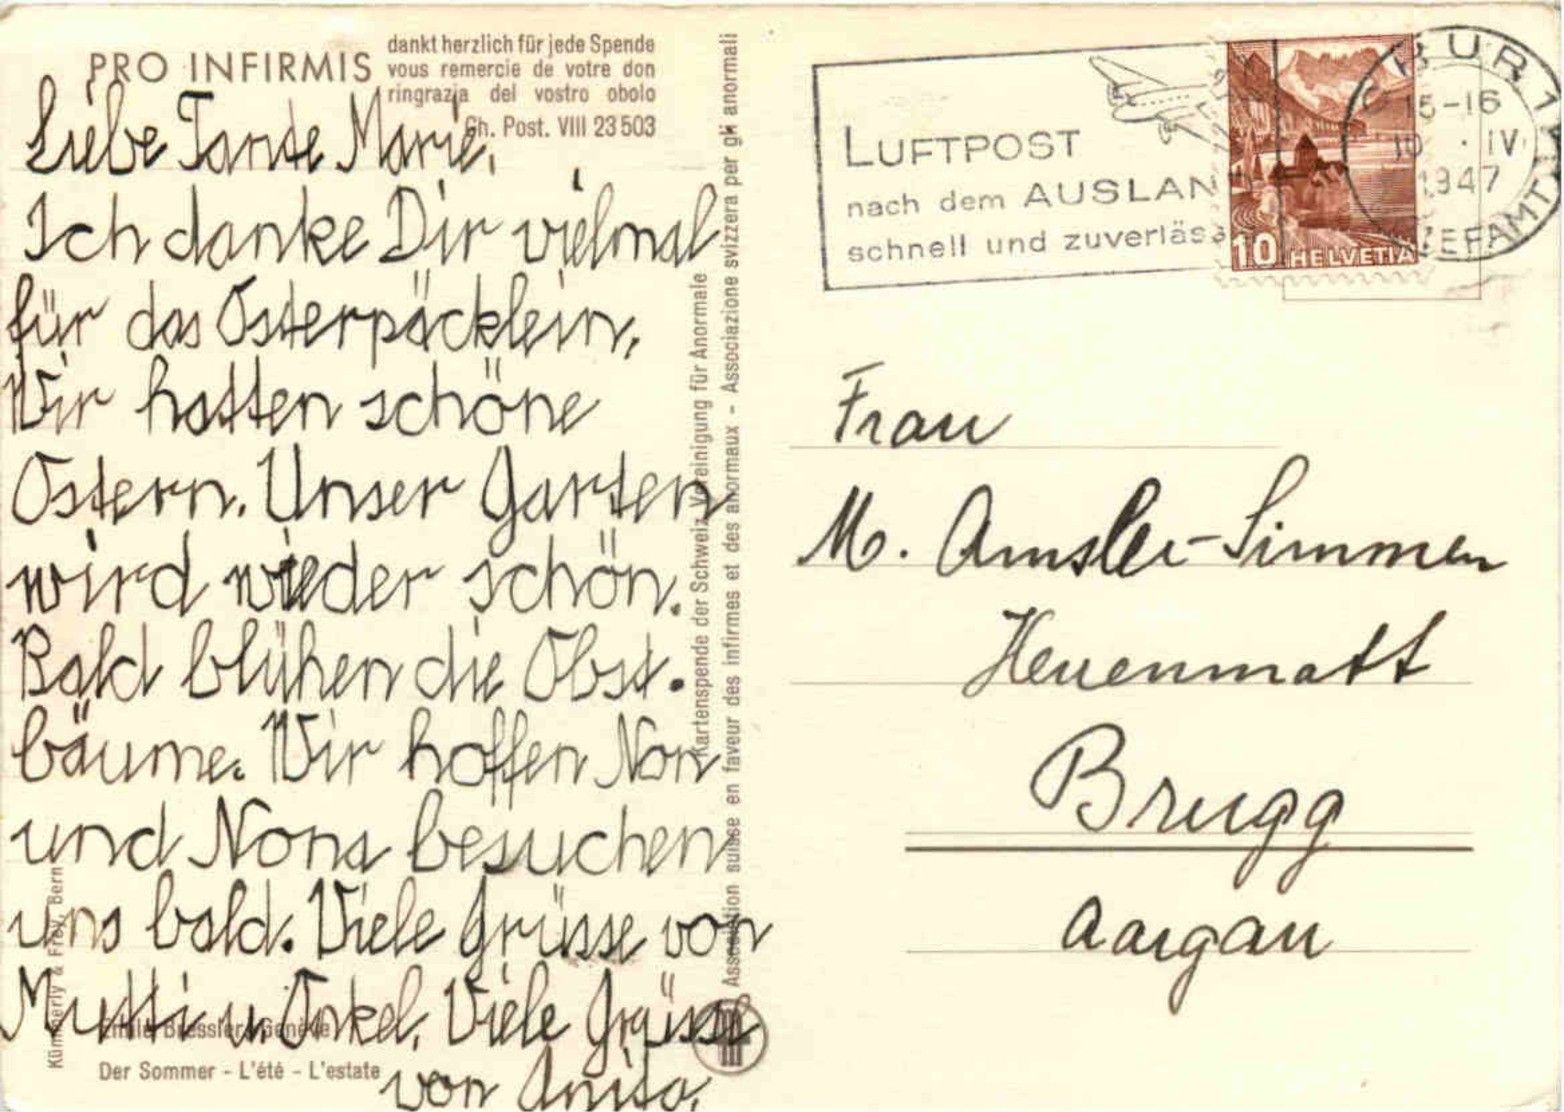 PRO INFIRMIS
dankt herzlich für jede Spende
vous remercie de votre don
ringrazia del vostro obolo
Ch. Post. VIII 23503
Liebe Tante Marie,
Ich danke Dir vielmal
für das Osterpäcklein,
Wir hatten schöne
Ostern. Unser Garten
wird wieder schön.
Bald blühen die Obst-
bäume. Wir hoffen Non
und Nona besuchen
uns bald. Viele Grüsse von
Mutti u. Onkel, Viele Grüsse
von Anita.
Der Sommer - L'été - L'estate
Kümmerly & Frey, Bern
Kartenspende der Schweiz. Vereinigung für Anormale
Association suisse en faveur des infirmes et des anormaux - Associazione svizzera per gli anormali
LUFTPOST
nach dem AUSLAN
schnell und zuverläs
10 HELVETIA
15-16
10 . IV
1947
Frau
M. Amsler-Simmen
Heuenmatt
Brugg
Aargau